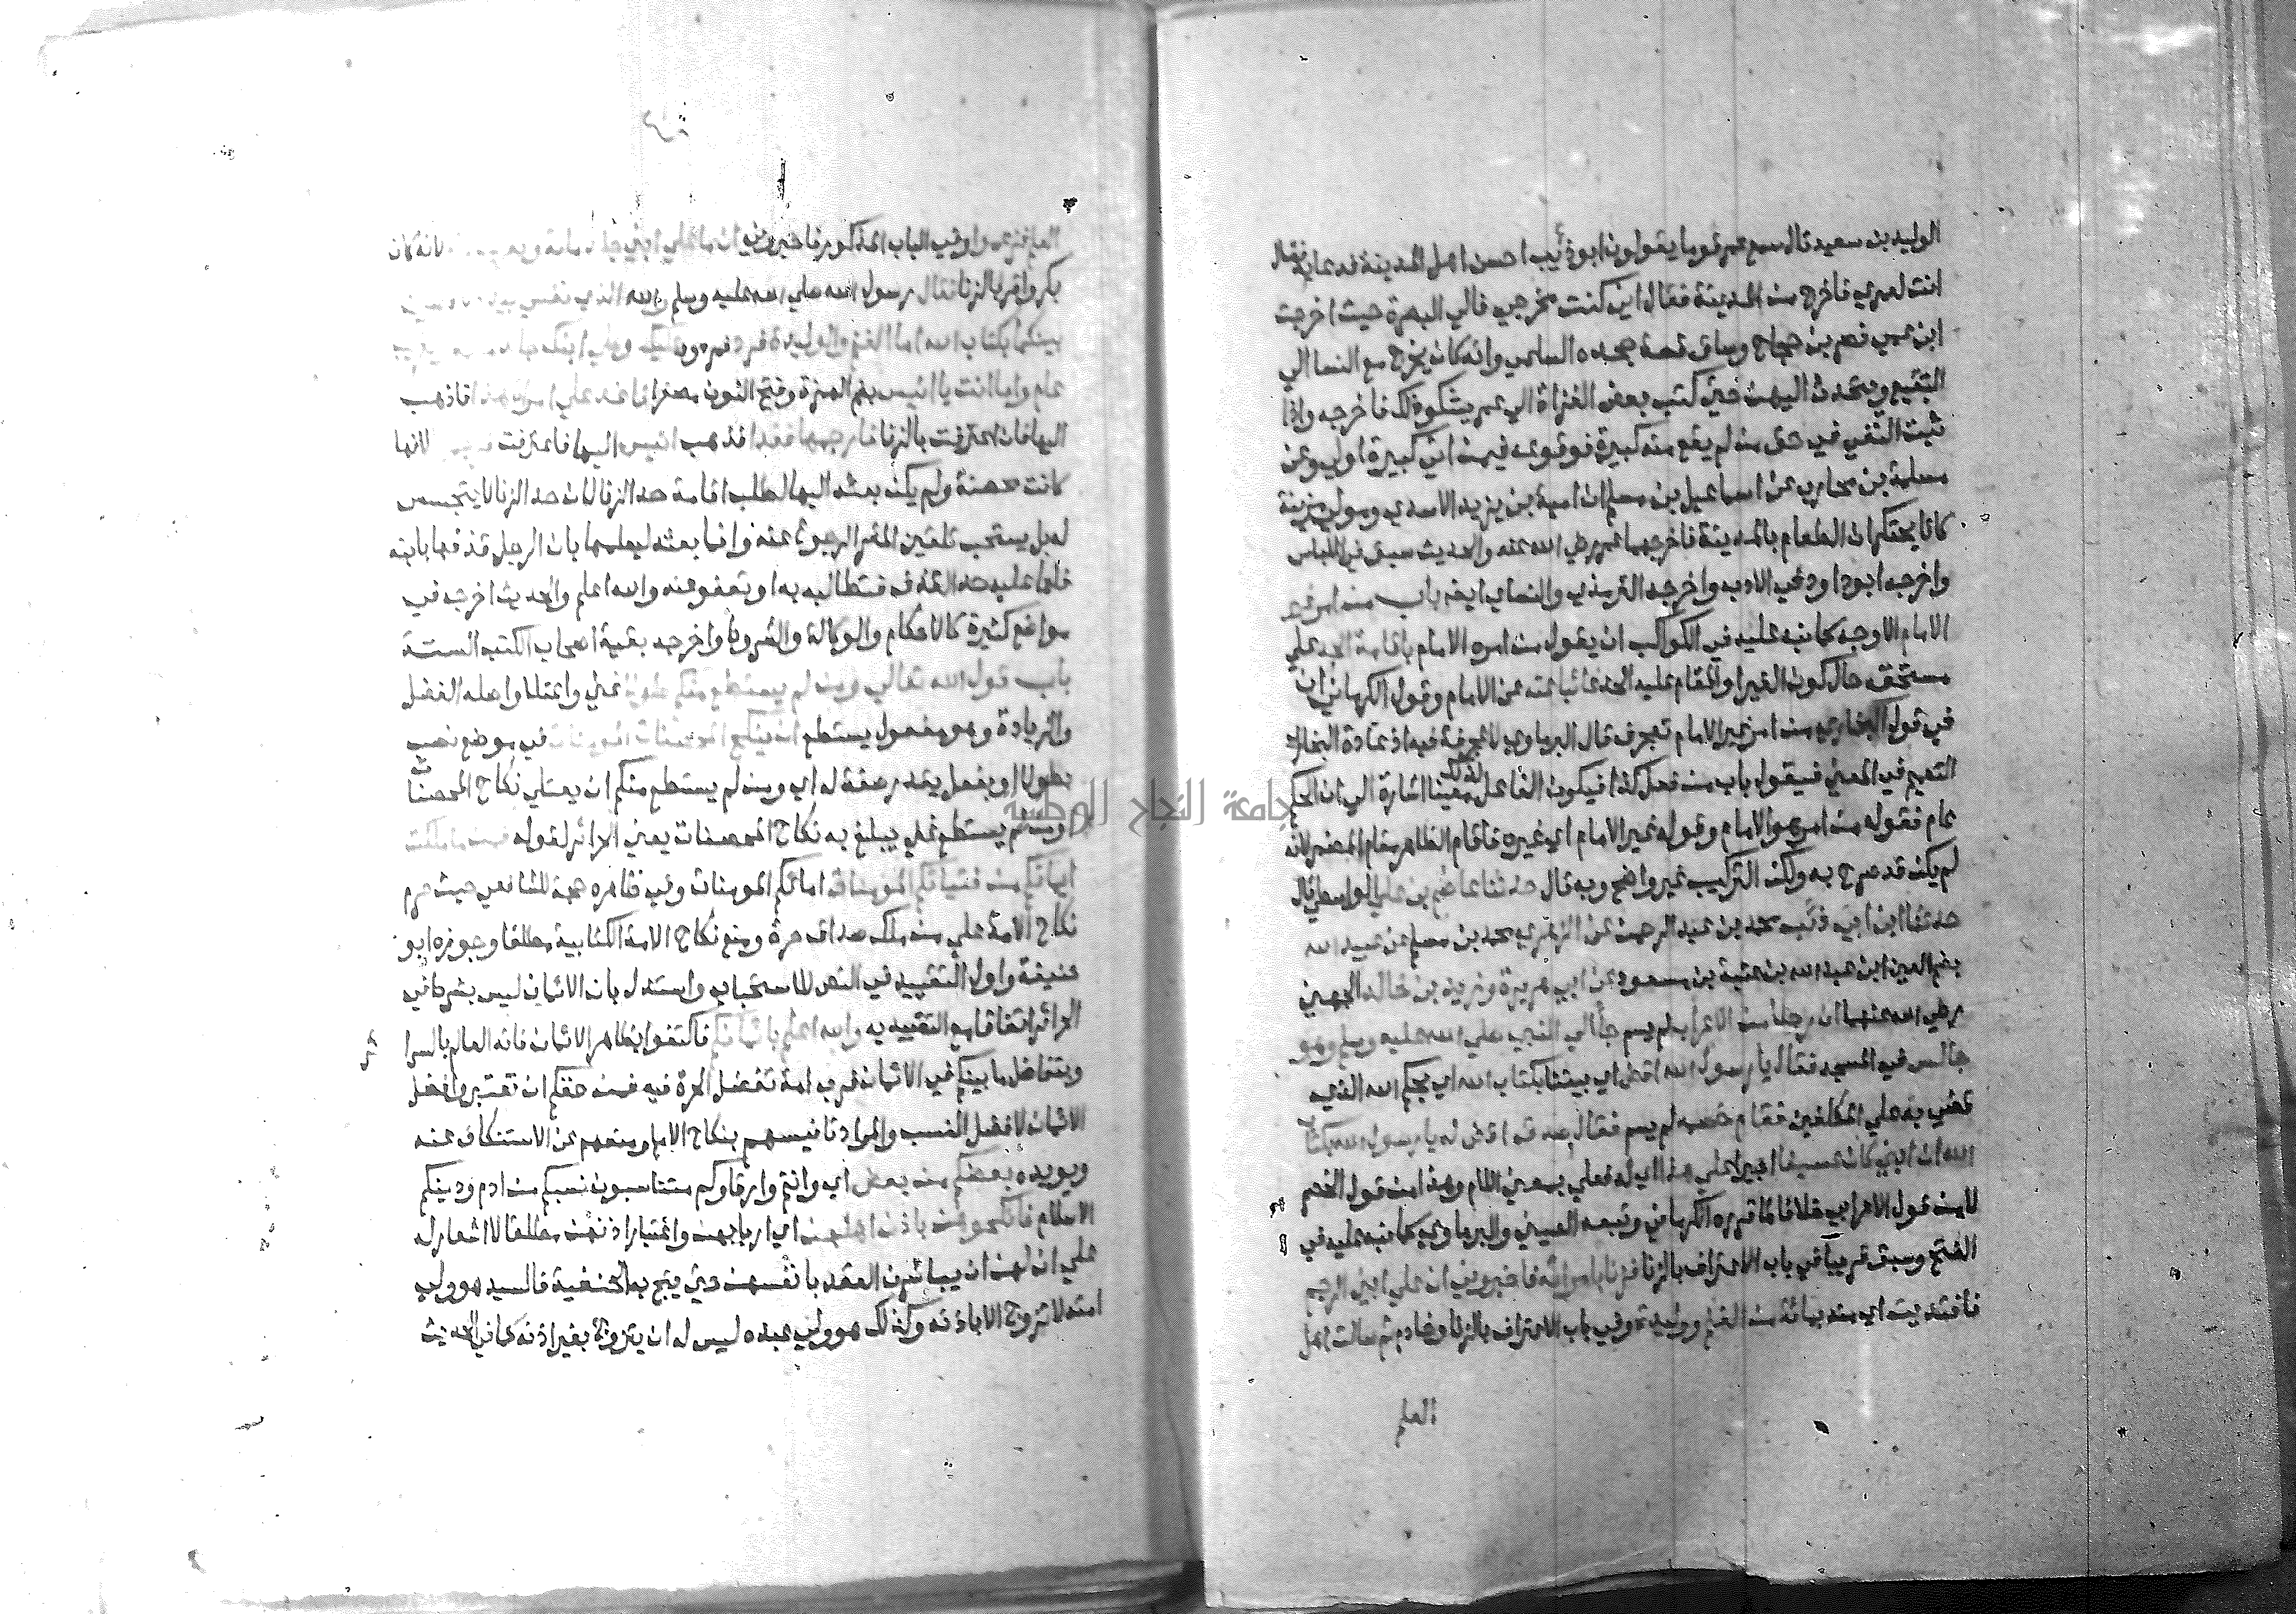 الوليد بن سعيد قال سمع عمر قوما يقولون ابو ذئيب احسن اهل المدينة فدعا به فقال
انت لعمري فاخرج من المدينة فقال ان كنت مخرجي فالي البصرة حيث اخرجت
ابن عمي نصر بن حجاج وساق قصة جعدة السلمي وانه كان يخرج مع النسا الي
البقيع ويتحدث اليهن حتي كتب بعض الغزاة الي عمر يشكو ذلك فاخرجه واذا
ثبت النفي في حق من لم يقع منه كبيرة فوقوعه فيمن اتي كبيرة اولي وعن
مسلمة بن محارب عن اسماعيل بن مسلم ان امية بن يزيد الاسدي ومولي مزينة
كانا يحتكران الطعام بالمدينة فاخرجهما عمر رضي الله عنه والحديث سبق في اللباس
واخرجه ابو داود في الادب واخرجه الترمذي والنساي ايضا باب من امر غير
الامام الاوجه كما نبه عليه في الكواكب ان يقول من امره الامام باقامة الحد علي
مستحقه حال كون الغير او المقام عليه الحد غائبا عنه عن الامام وقول الكرماني ان
في قول البخاري من امر غير الامام تعجرف قال البرماوي لا عجرفة فيه اذ عادة البخاري
التعميم في المعني فيقول باب من فعل كذا فيكون الفاعل لذلك معينا اشارة الي ان الحكم
عام فقوله من امر هو الامام وقوله غير الامام اي غيره فاقام الظاهر مقام المضمر لانه
لم يكن قد صرح به ولكن التركيب غير واضح وبه قال حدثنا عاصم بن علي الواسطي قال
حدثنا ابن ابي ذئب محمد بن عبد الرحمن عن الزهري محمد بن مسلم عن عبيد الله
بضم العين ابن عبد الله بن عتبة بن مسعود عن ابي هريرة وزيد بن خالد الجهني
رضي الله عنهما ان رجلا من الاعراب لم يسم جا الي النبي صلي الله عليه وسلم وهو
جالس في المسجد فقال يا رسول الله اقض اي بيننا بكتاب الله اي بحكم الله الذي
قضي به علي المكلفين فقام خصمه لم يسم فقال صدق اقض له يا رسول الله بكتاب
الله ان ابني كان عسيفا اجيرا علي هذا اي له فعلي بمعني اللام وهذا من قول الخصم
لا من قول الاعرابي خلافا لما قرره الكرماني وتبعه العيني والبرماوي كما نبه عليه في
الفتح وسبق قريبا في باب الاعتراف بالزنا فزنا بامراته فاخبروني ان علي ابني الرجم
فافتديت اي منه بمائة من الغنم ووليدة وفي باب الاعتراف بالزنا وخادم ثم سالت اهل
العلم
العلم فزعموا وفي الباب المذكور فاخبروني ان ما علي ابني جلد ماية لانه كان
بكر واقر بالزنا فقال رسول الله صلي الله عليه وسلم والله الذي نفسي بيده
بينكما بكتاب الله اما الغنم والوليدة فرد فمردود عليك وعلي ابنك جلد
عام واما انت يا انيس بضم الهمزة وفتح النون مصغرا فاغد علي امراة هذا فاذهب
اليها فان اعترفت بالزنا فارجمها فغدا فذهب انيس اليها فاعترفت لانها
كانت محصنة ولم يكن بعثه اليها لطلب اقامة حد الزنا لان حد الزنا لا يتجسس
له بل يستحب تلقين المقر الرجوع عنه وانما بعثه ليعلمها بان الرجل قذفها بابنه
فلها عليه حد القذف فتطالبه به او تعفو عنه والله اعلم والحديث اخرجه في
مواضع كثيرة كالاحكام والوكالة والشروط واخرجه بقية اصحاب الكتب الستة
باب قول الله تعالي ومن لم يستطع منكم طولا غني واعتلا واصله الفضل
والزيادة وهو مفعول يستطع ان ينكح المحصنات المومنات في موضع نصب
بطولا او بفعل يقدر صفة له اي ومن لم يستطع منكم ان يعتلي نكاح المحصنات
ومن لم يستطع غني يبلغ به نكاح المحصنات يعني الحرائر لقوله فمن ما ملكت
ايمانكم من فتياتكم المومنات امائكم المومنات وفي ظاهره حجة للشافعي حيث حرم
نكاح الامة علي من ملك صداق حرة ومنع نكاح الامة الكتابية مطلقا وجوزه ابو
حنيفة واول التقييد في النص للاستحباب واستدل بان الايمان ليس بشرط في
الحرائر اتفاقا مع التقييد به والله اعلم بايمانكم فاكتفوا بظاهر الايمان فانه العالم بالسرا
ئر
وبتفاضل ما بينكم في الايمان فرب امة تفضل الحرة فيه فمن حقكم ان تعتبروا فضل
الايمان لا فضل النسب والمراد تانيسهم بنكاح الاما ومنعهم عن الاستنكاف عنه
ويويده بعضكم من بعض اي وانتم وارقاوكم متناسبون نسبكم من ادم ودينكم
الاسلام فانكحوهن باذن اهلهن اي اربابهن واعتبار اذنهن مطلقا لا اشعار له
علي ان لهن ان يباشرن العقد بانفسهن حتي يحتج به الحنفية فالسيد هو ولي
امته لا تزوج الا باذنه وكذلك هو ولي عبده ليس له ان يتزوج بغير اذنه كما في الحديث
جامعة النجاح الوطنية